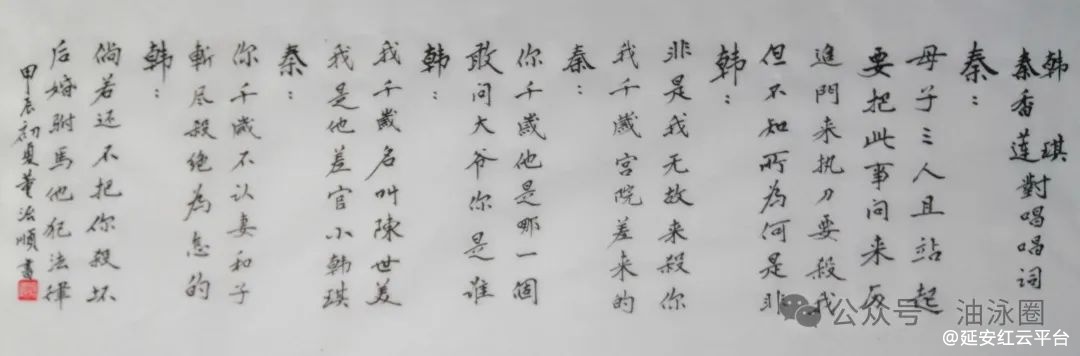 韩琪
秦香莲對唱唱词
秦：
母子三人且站起
要把此事问来
進門来执刀要殺我
但不知所為何是非
韩：
非是我无故来殺你
我千歲宫院差来的
秦：
你千歲他是哪一個
敢问大爷你是谁
韩：
我千歲名叫陳世美
我是他差官小韩琪
秦：
你千歲不认妻和子
斬尽殺绝為怎的
韩：
倘若还不把你殺坏
后婚駙馬他犯法律
甲辰初夏董法順書
公众号·油泳圈
@延安红云平台